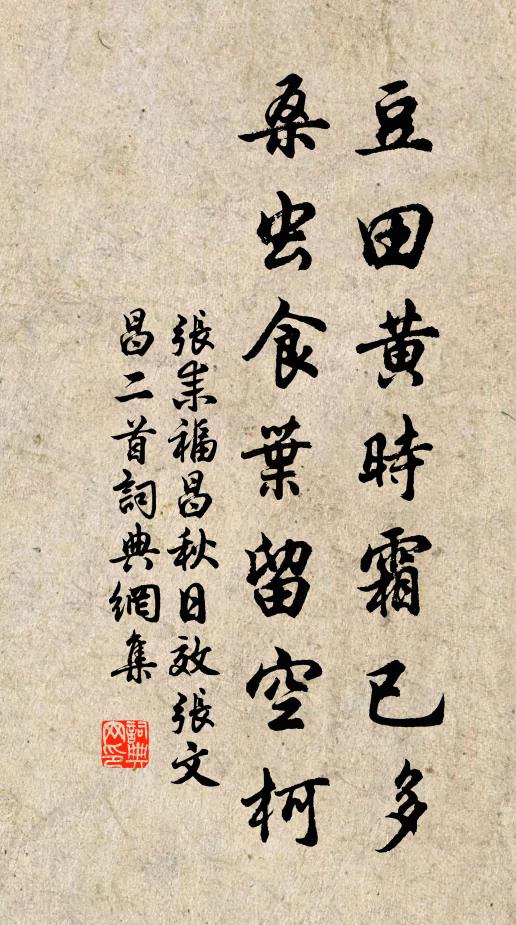 豆田黄時霜已多
桑虫食葉留空柯
張耒福昌秋日效張文
昌二首詞典網集
詞典网印